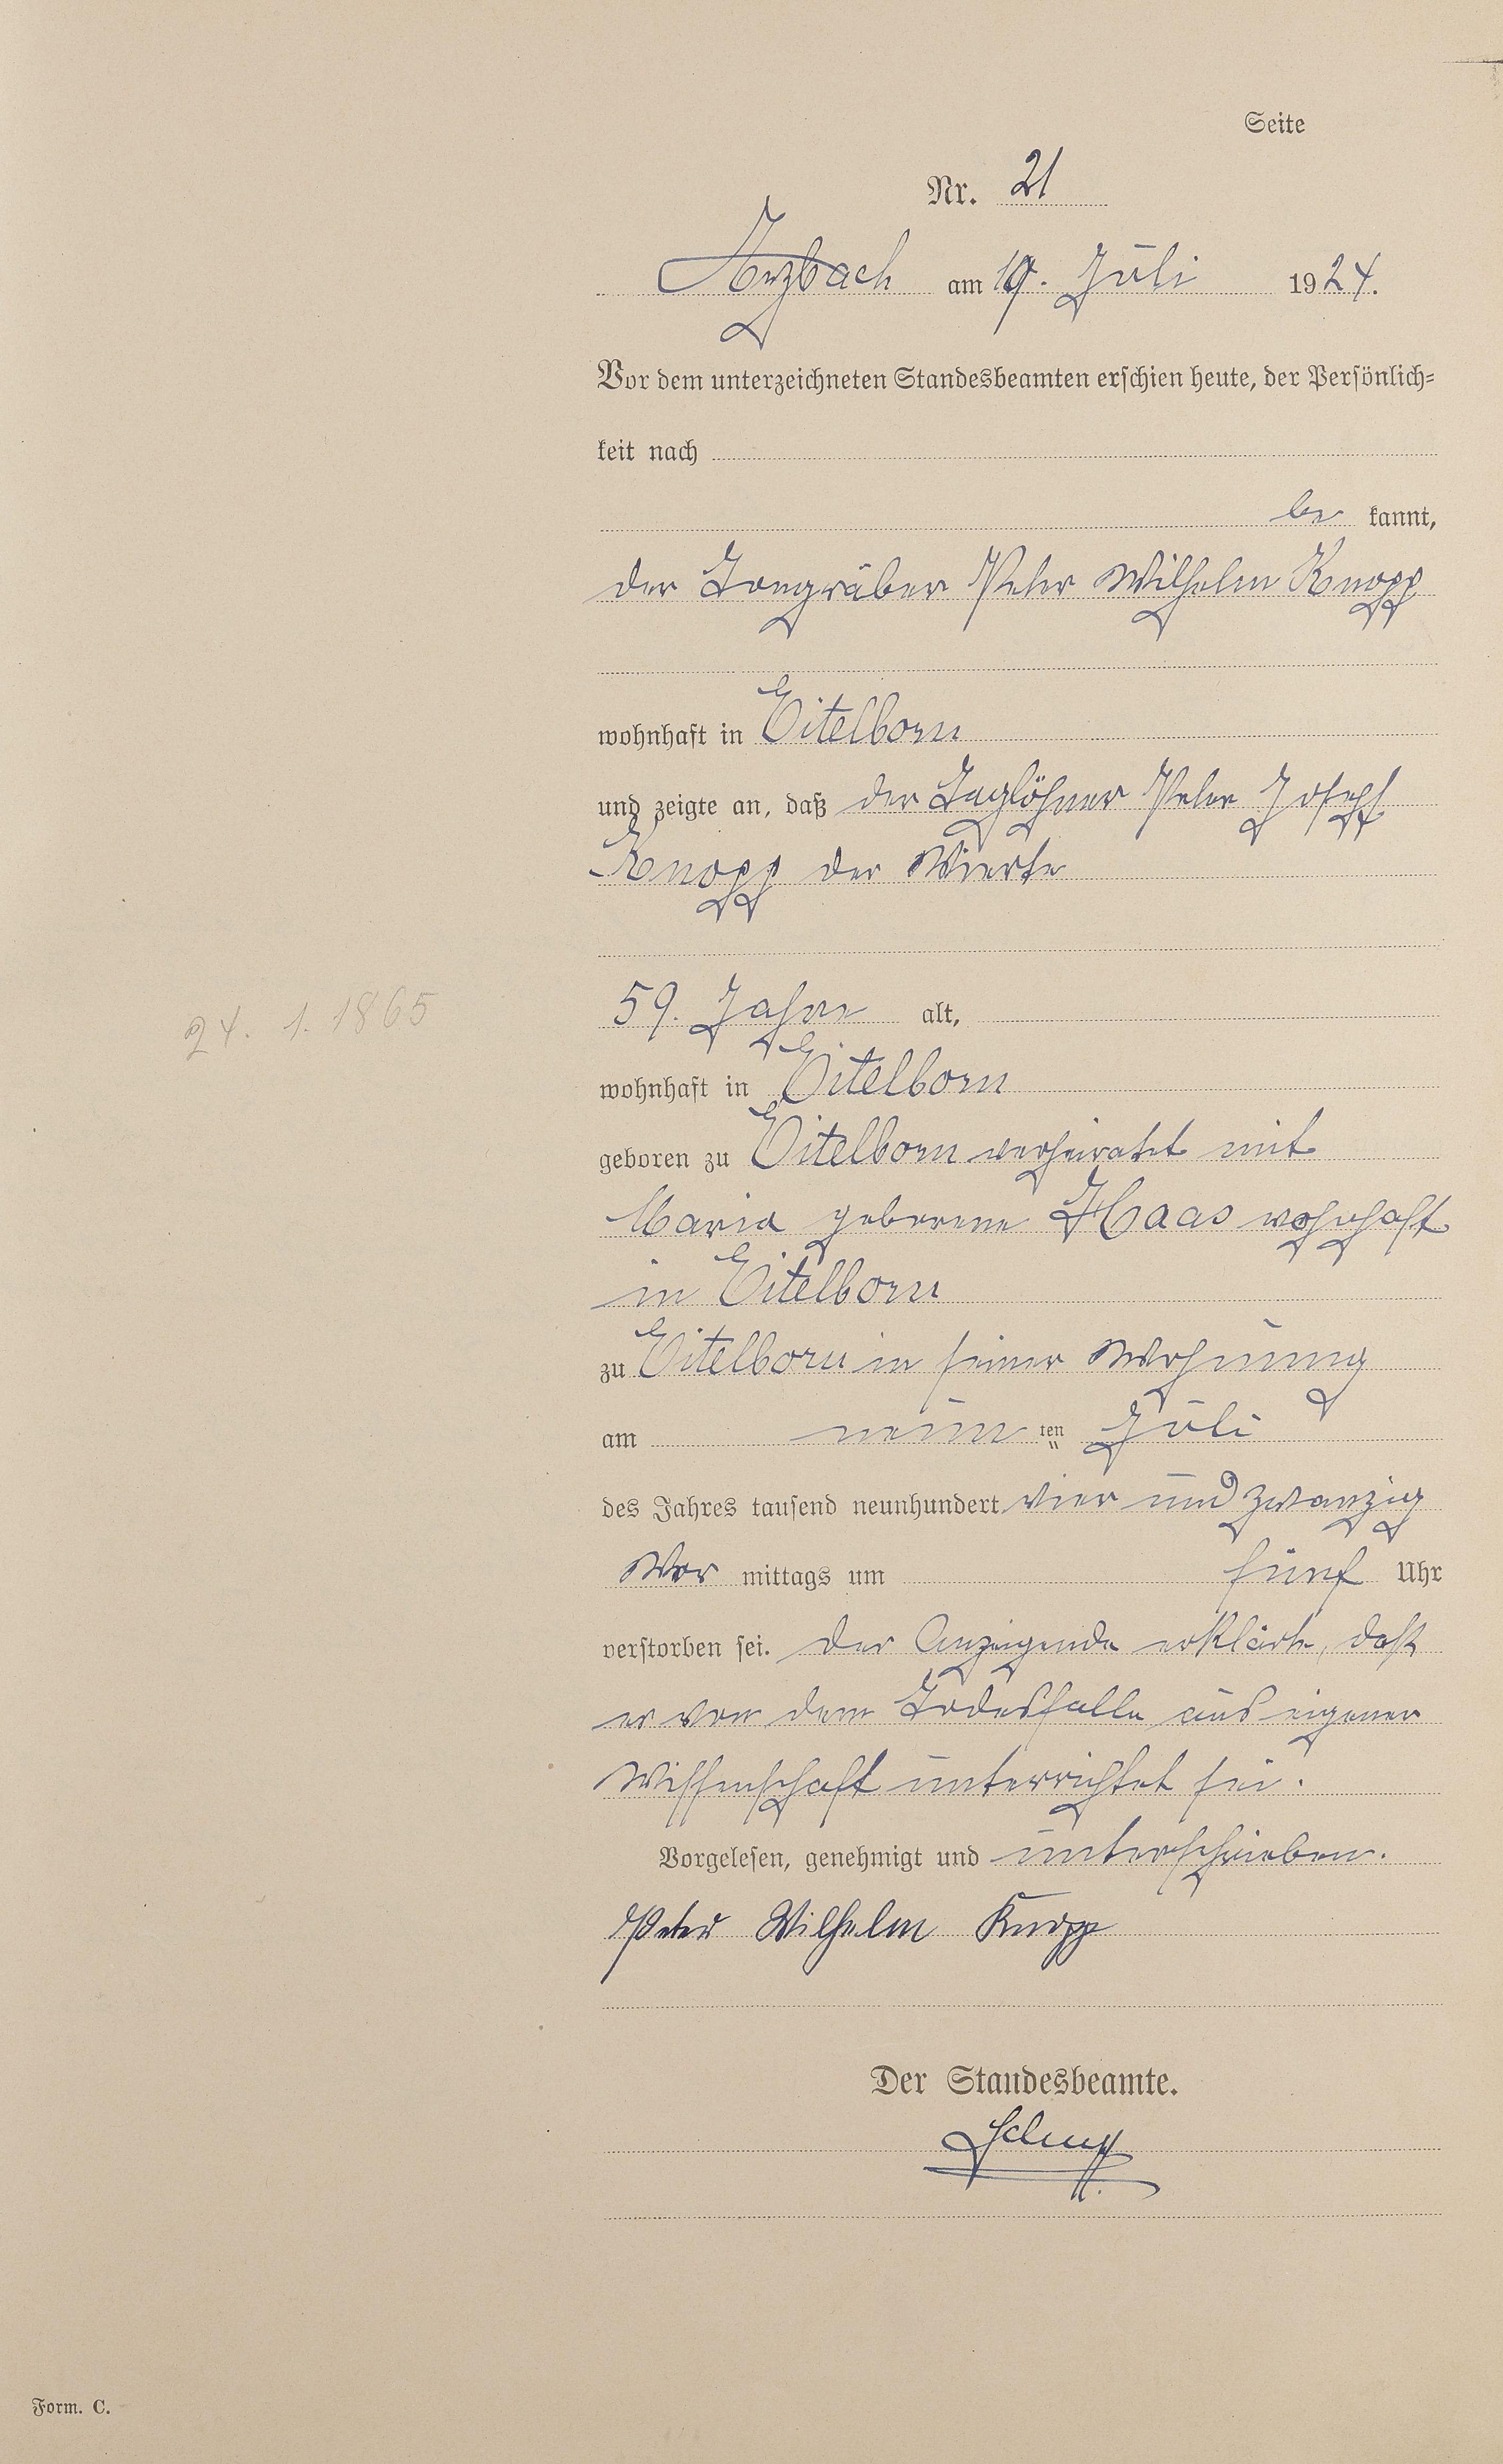 Seite
Nr. 21
Arzbach am 10. Juli 1924.
Vor dem unterzeichneten Standesbeamten erschien heute, der Persönlich-
keit nach
be kannt,
der Tongräber Peter Wilhelm Knopp
wohnhaft in Eitelborn
und zeigte an, daß der Taglöhner Peter Joseph
Knopp der Vierte
24. 1. 1865
59. Jahre alt,
wohnhaft in Eitelborn
geboren zu Eitelborn verheiratet mit
Maria geborene Haas wohnhaft
in Eitelborn
zu Eitelborn in seiner Wohnung
am neun ten Juli
des Jahres tausend neunhundert vier und zwanzig
Vor mittags um fünf Uhr
verstorben sei. Der Anzeigende erklärte, daß
er von dem Todesfalle aus eigener
Wissenschaft unterrichtet sei.
Vorgelesen, genehmigt und unterschrieben.
Peter Wilhelm Knopp
Der Standesbeamte.
Form. C.